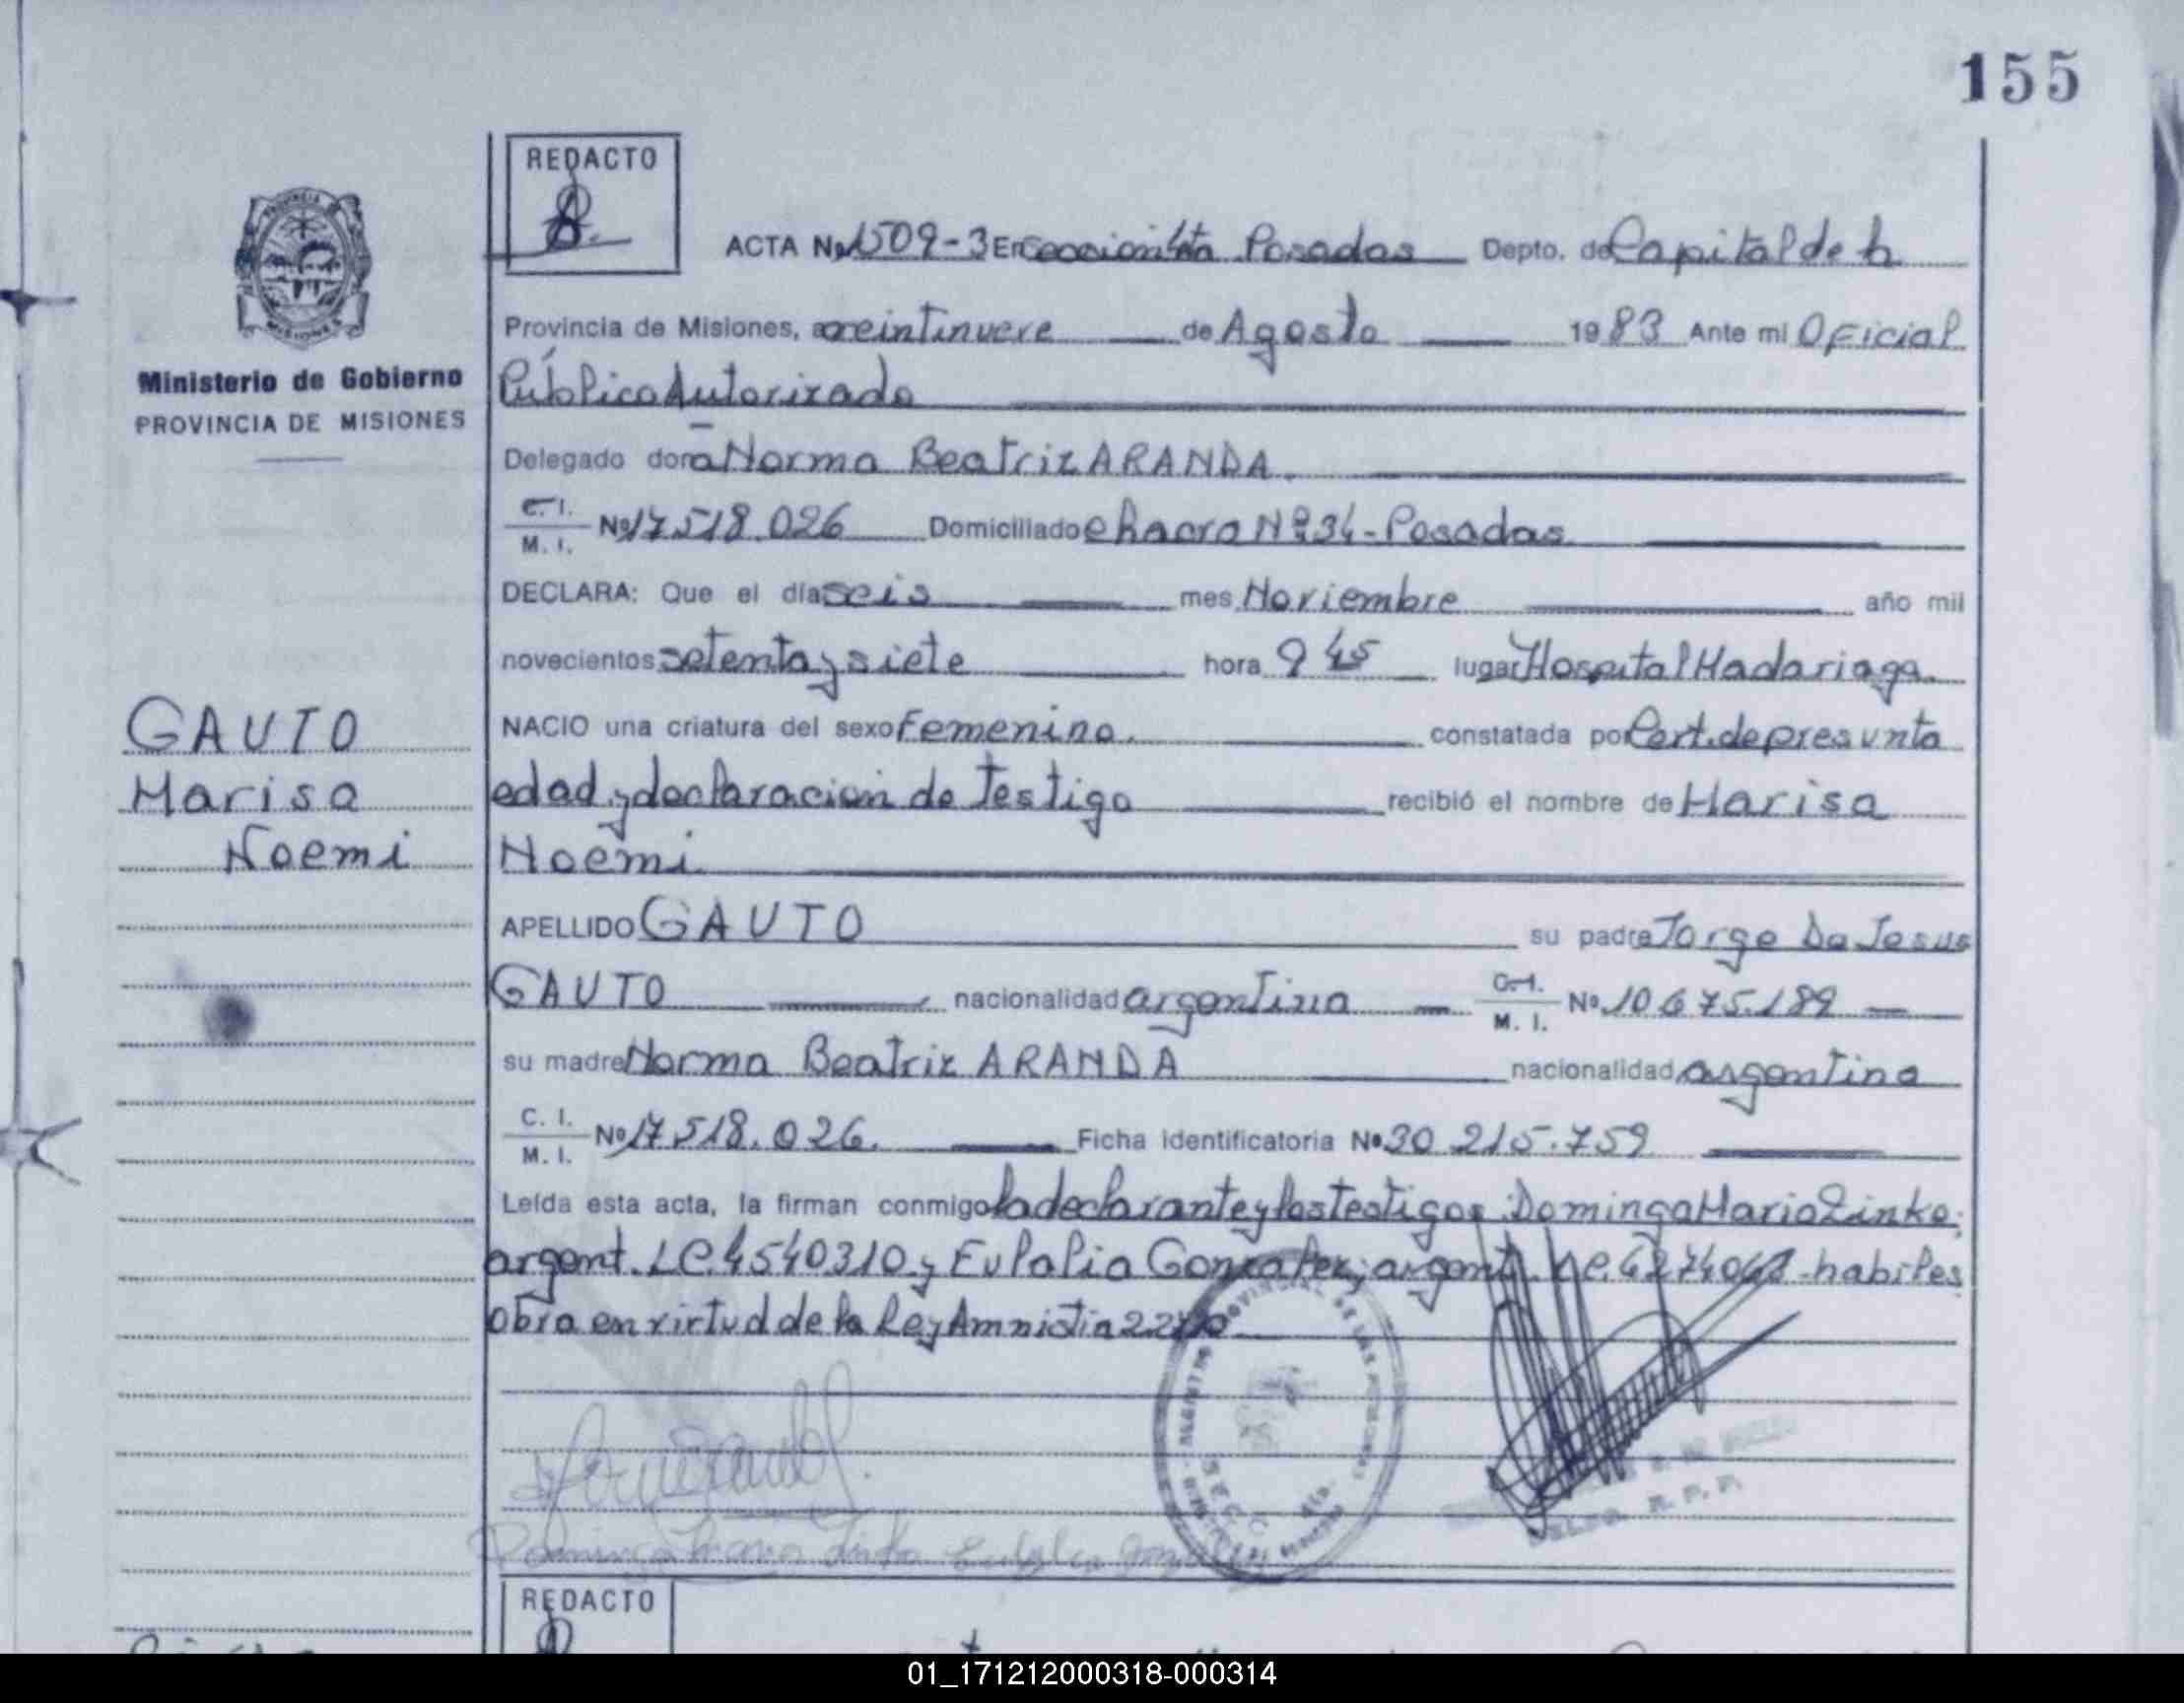 155
REDACTO
ACTA Nº 1509-3 En Seccion 4ta Posadas Depto. de Capital de la
Provincia de Misiones, a veintinueve de Agosto 1983 Ante mi Oficial
Público Autorizado
Ministerio de Gobierno
PROVINCIA DE MISIONES
Delegado doña Norma Beatriz ARANDA
C. I.
M. I. Nº 17518.026 Domiciliado chacra Nº 34 - Posadas
DECLARA: Que el día seis mes Noviembre año mil
novecientos setenta y siete hora 9 45 lugar Hospital Madariaga
NACIO una criatura del sexo Femenino constatada por Cert. de presunta
edad y declaracion de Testigo recibió el nombre de Marisa
Noemi
GAUTO
Marisa
Noemi
APELLIDO GAUTO su padre Jorge De Jesus
GAUTO nacionalidad argentina C. I.
M. I. Nº 10675.189
su madre Norma Beatriz ARANDA nacionalidad argentina
C. I.
M. I. Nº 17518.026. Ficha identificatoria Nº 30 215.759
Leída esta acta, la firman conmigo la declarante y los testigos: Dominga Maria Zinko;
argent. LC. 4540310 y Eulalia Gonzalez; argent. habiles
Obra en virtud de la Ley Amnistia
REDACTO
01_171212000318-000314